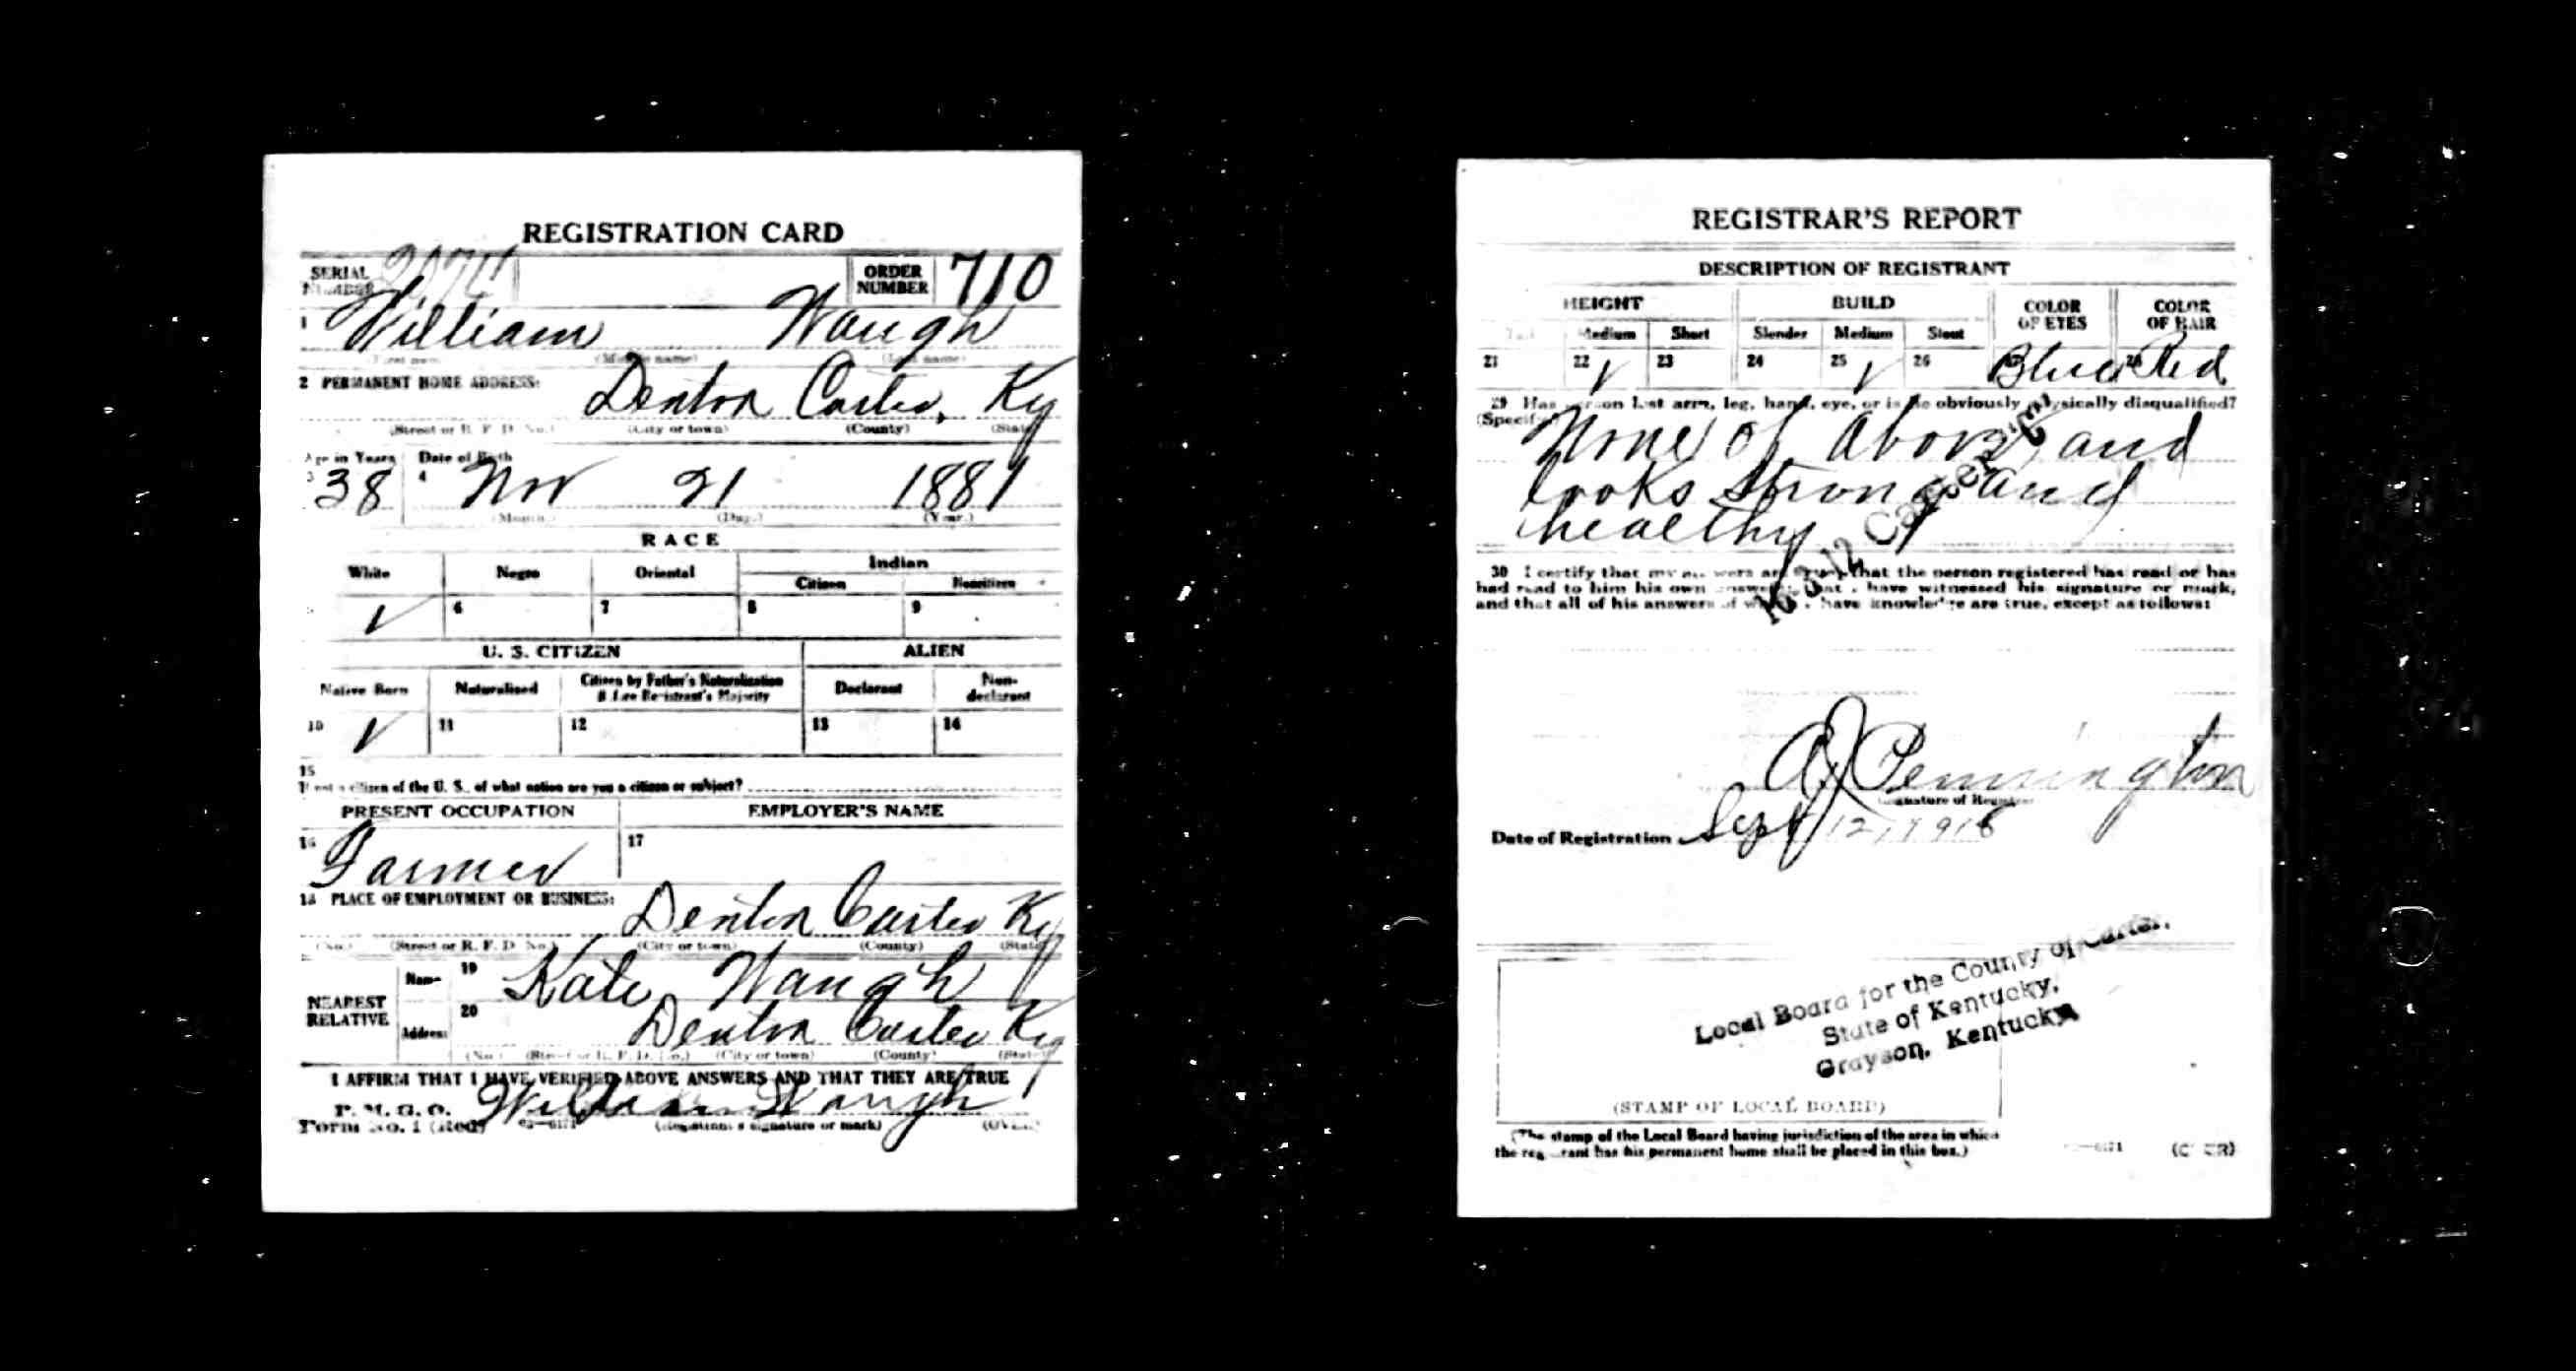 REGISTRATION CARD
SERIAL NUMBER ORDER NUMBER 710
1 William Waugh
(First name) (Middle name) (Last name)
2 PERMANENT HOME ADDRESS:
Denton Carter, Ky
(Street or R. F. D. No.) (City or town) (County) (State)
Age in Years Date of Birth
3 38 4 Nov 21 1881
(Month.) (Day.) (Year.)
RACE
White Negro Oriental Indian
Citizen Noncitizen
✓ 6 7 8 9
U. S. CITIZEN ALIEN
Native Born Naturalized Citizen by Father's Naturalization Before Registrant's Majority Declarant Non-declarant
10 ✓ 11 12 13 14
15
If not a citizen of the U. S., of what nation are you a citizen or subject?
PRESENT OCCUPATION EMPLOYER'S NAME
16 Farmer 17
18 PLACE OF EMPLOYMENT OR BUSINESS:
Denton Carter Ky
(No.) (Street or R. F. D. No.) (City or town) (County) (State)
NEAREST RELATIVE Name 19 Kate Waugh
Address 20 Denton Carter Ky
(No.) (Street or R. F. D. No.) (City or town) (County) (State)
I AFFIRM THAT I HAVE VERIFIED ABOVE ANSWERS AND THAT THEY ARE TRUE
P. M. G. O.
Form No. 1 (Red) William Waugh
(Registrant's signature or mark) (OVER)
REGISTRAR'S REPORT
DESCRIPTION OF REGISTRANT
HEIGHT BUILD COLOR OF EYES COLOR OF HAIR
Tall Medium Short Slender Medium Stout
21 22 ✓ 23 24 25 ✓ 26 Blue 28 Red
29 Has person lost arm, leg, hand, eye, or is he obviously physically disqualified?
(Specify)
None of above and
looks strong and
healthy
16 3 12 Carter
30 I certify that my answers are true, that the person registered has read or has
had read to him his own answers, that I have witnessed his signature or mark,
and that all of his answers of which I have knowledge are true, except as follows:
A J Pennington
(Signature of Registrar)
Date of Registration Sept 12, 1918
Local Board for the County of Carter,
State of Kentucky,
Grayson, Kentucky
(STAMP OF LOCAL BOARD)
(The stamp of the Local Board having jurisdiction of the area in which
the registrant has his permanent home shall be placed in this box.)
(OVER)